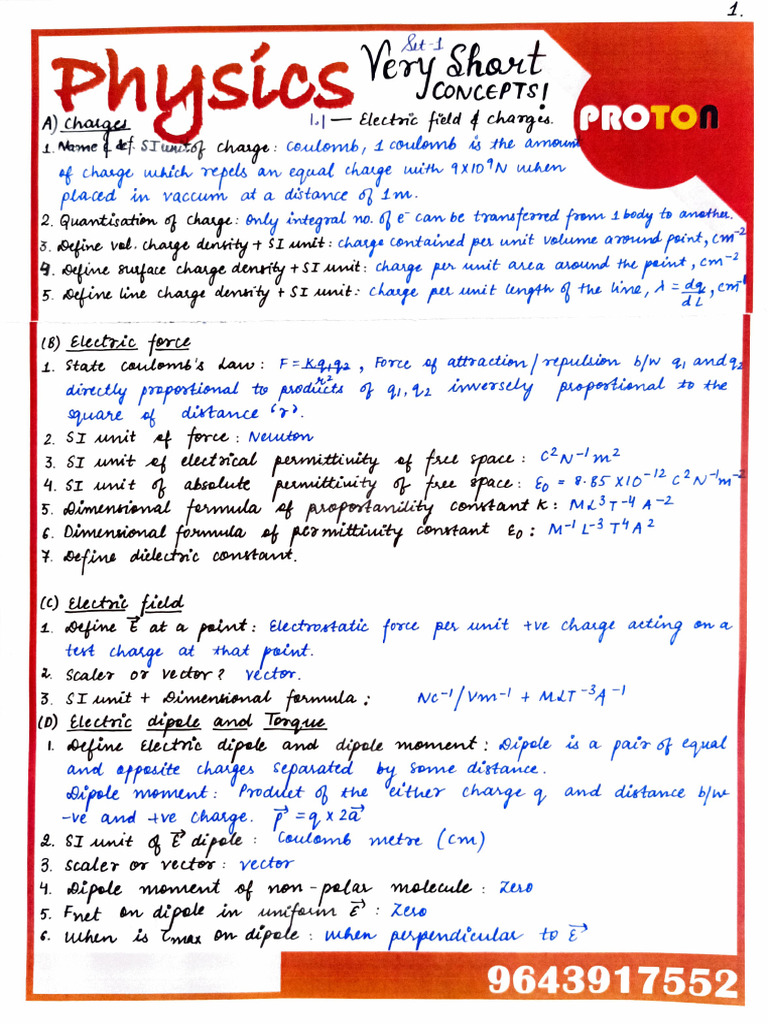 1.
Physics
Set-1
Very Short
CONCEPTS!
PROTON
A) Charges
1.1 — Electric field & charges.
1. Name & def. SI unit of charge: Coulomb, 1 coulomb is the amount
of charge which repels an equal charge with 9X10⁹N when
placed in vaccum at a distance of 1m.
2. Quantisation of charge: Only integral no. of e⁻ can be transferred from 1 body to another.
3. Define vol. charge density + SI unit: charge contained per unit volume around point, cm⁻²
4. Define surface charge density + SI unit: charge per unit area around the point, cm⁻²
5. Define line charge density + SI unit: Charge per unit length of the line, λ = dq/dL, cm⁻¹
(B) Electric force
1. State Coulomb's Law: F = Kq₁q₂/r², Force of attraction/repulsion b/w q₁ and q₂
directly proportional to products of q₁, q₂ inversely proportional to the
square of distance 'r'.
2. SI unit of force: Newton
3. SI unit of electrical permittivity of free space: C²N⁻¹m²
4. SI unit of absolute permittivity of free space: ε₀ = 8.85 X10⁻¹² C²N⁻¹m⁻²
5. Dimensional formula of proportanility constant K: ML³T⁻⁴A⁻²
6. Dimensional formula of permittivity constant ε₀: M⁻¹L⁻³T⁴A²
7. Define dielectric constant.
(C) Electric field
1. Define E⃗ at a point: Electrostatic force per unit +ve charge acting on a
test charge at that point.
2. Scaler or vector? vector.
3. SI unit + Dimensional formula: NC⁻¹/Vm⁻¹ + MLT⁻³A⁻¹
(D) Electric dipole and Torque
1. Define Electric dipole and dipole moment: Dipole is a pair of equal
and opposite charges separated by some distance.
Dipole moment: Product of the either charge q and distance b/w
-ve and +ve charge. p⃗ = q x 2a⃗
2. SI unit of E⃗ dipole: Coulomb metre (cm)
3. Scaler or vector: vector
4. Dipole moment of non-polar molecule: Zero
5. Fnet on dipole in uniform E⃗: Zero
6. When is τmax on dipole: when perpendicular to E⃗
9643917552